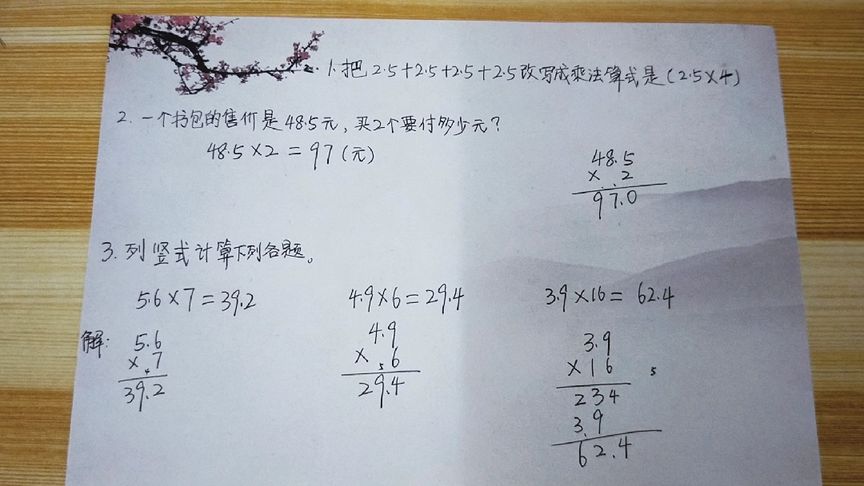 1.把2.5+2.5+2.5+2.5改写成乘法算式是(2.5×4)
2.一个书包的售价是48.5元,买2个要付多少元?
48.5×2=97(元)
48.5
×  2
97.0
3.列竖式计算下列各题。
5.6×7=39.2  4.9×6=29.4  3.9×16=62.4
解:
5.6
× 4 7
39.2
4.9
× 5 6
29.4
3.9
×16
5
234
3.9
62.4